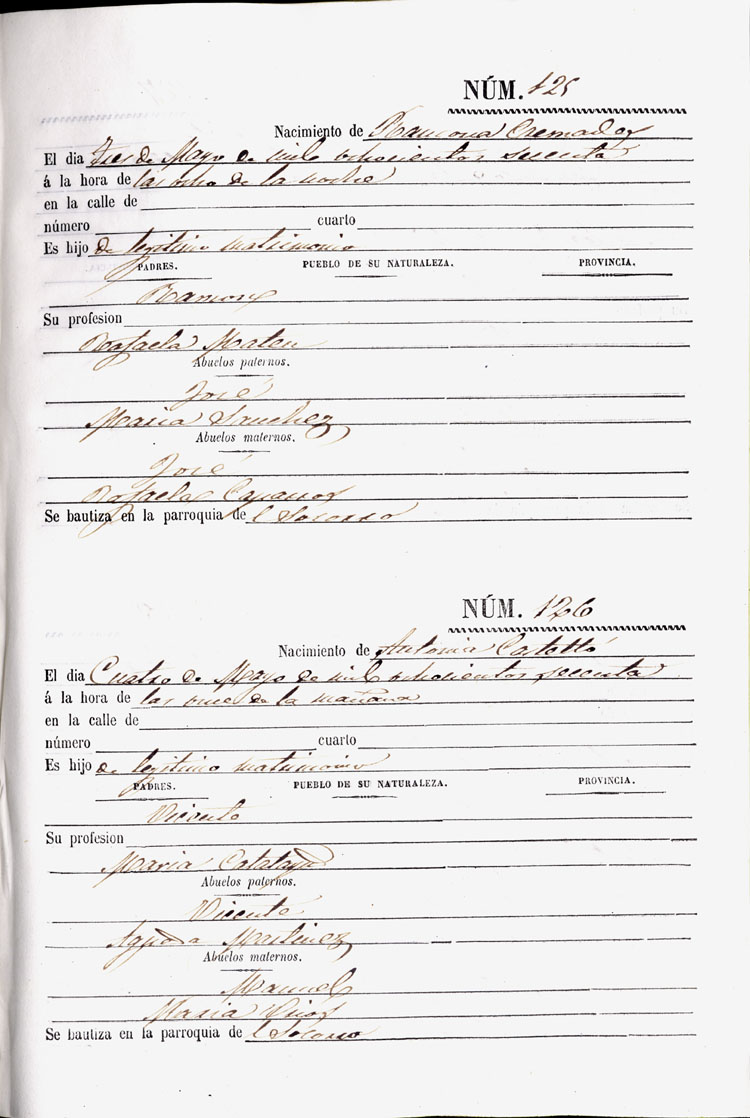 NÚM. 125
Nacimiento de Ramona Cremades
El dia tres de Mayo de mil ochocientos sesenta
á la hora de las ocho de la noche
en la calle de
número cuarto
Es hijo de legitimo matrimonio
PADRES. PUEBLO DE SU NATURALEZA. PROVINCIA.
Ramon
Su profesion
Rafaela Mateu
Abuelos paternos.
José
Maria Sanchez
Abuelos maternos.
José
Rafaela
Se bautiza en la parroquia del Socorro
NÚM. 126
Nacimiento de Antonia
El dia Cuatro de Mayo de mil ochocientos sesenta
á la hora de las once de la mañana
en la calle de
número cuarto
Es hijo de legitimo matrimonio
PADRES. PUEBLO DE SU NATURALEZA. PROVINCIA.
Vicente
Su profesion
Maria
Abuelos paternos.
Vicente
Agueda Martinez
Abuelos maternos.
Manuel
Maria
Se bautiza en la parroquia del Socorro